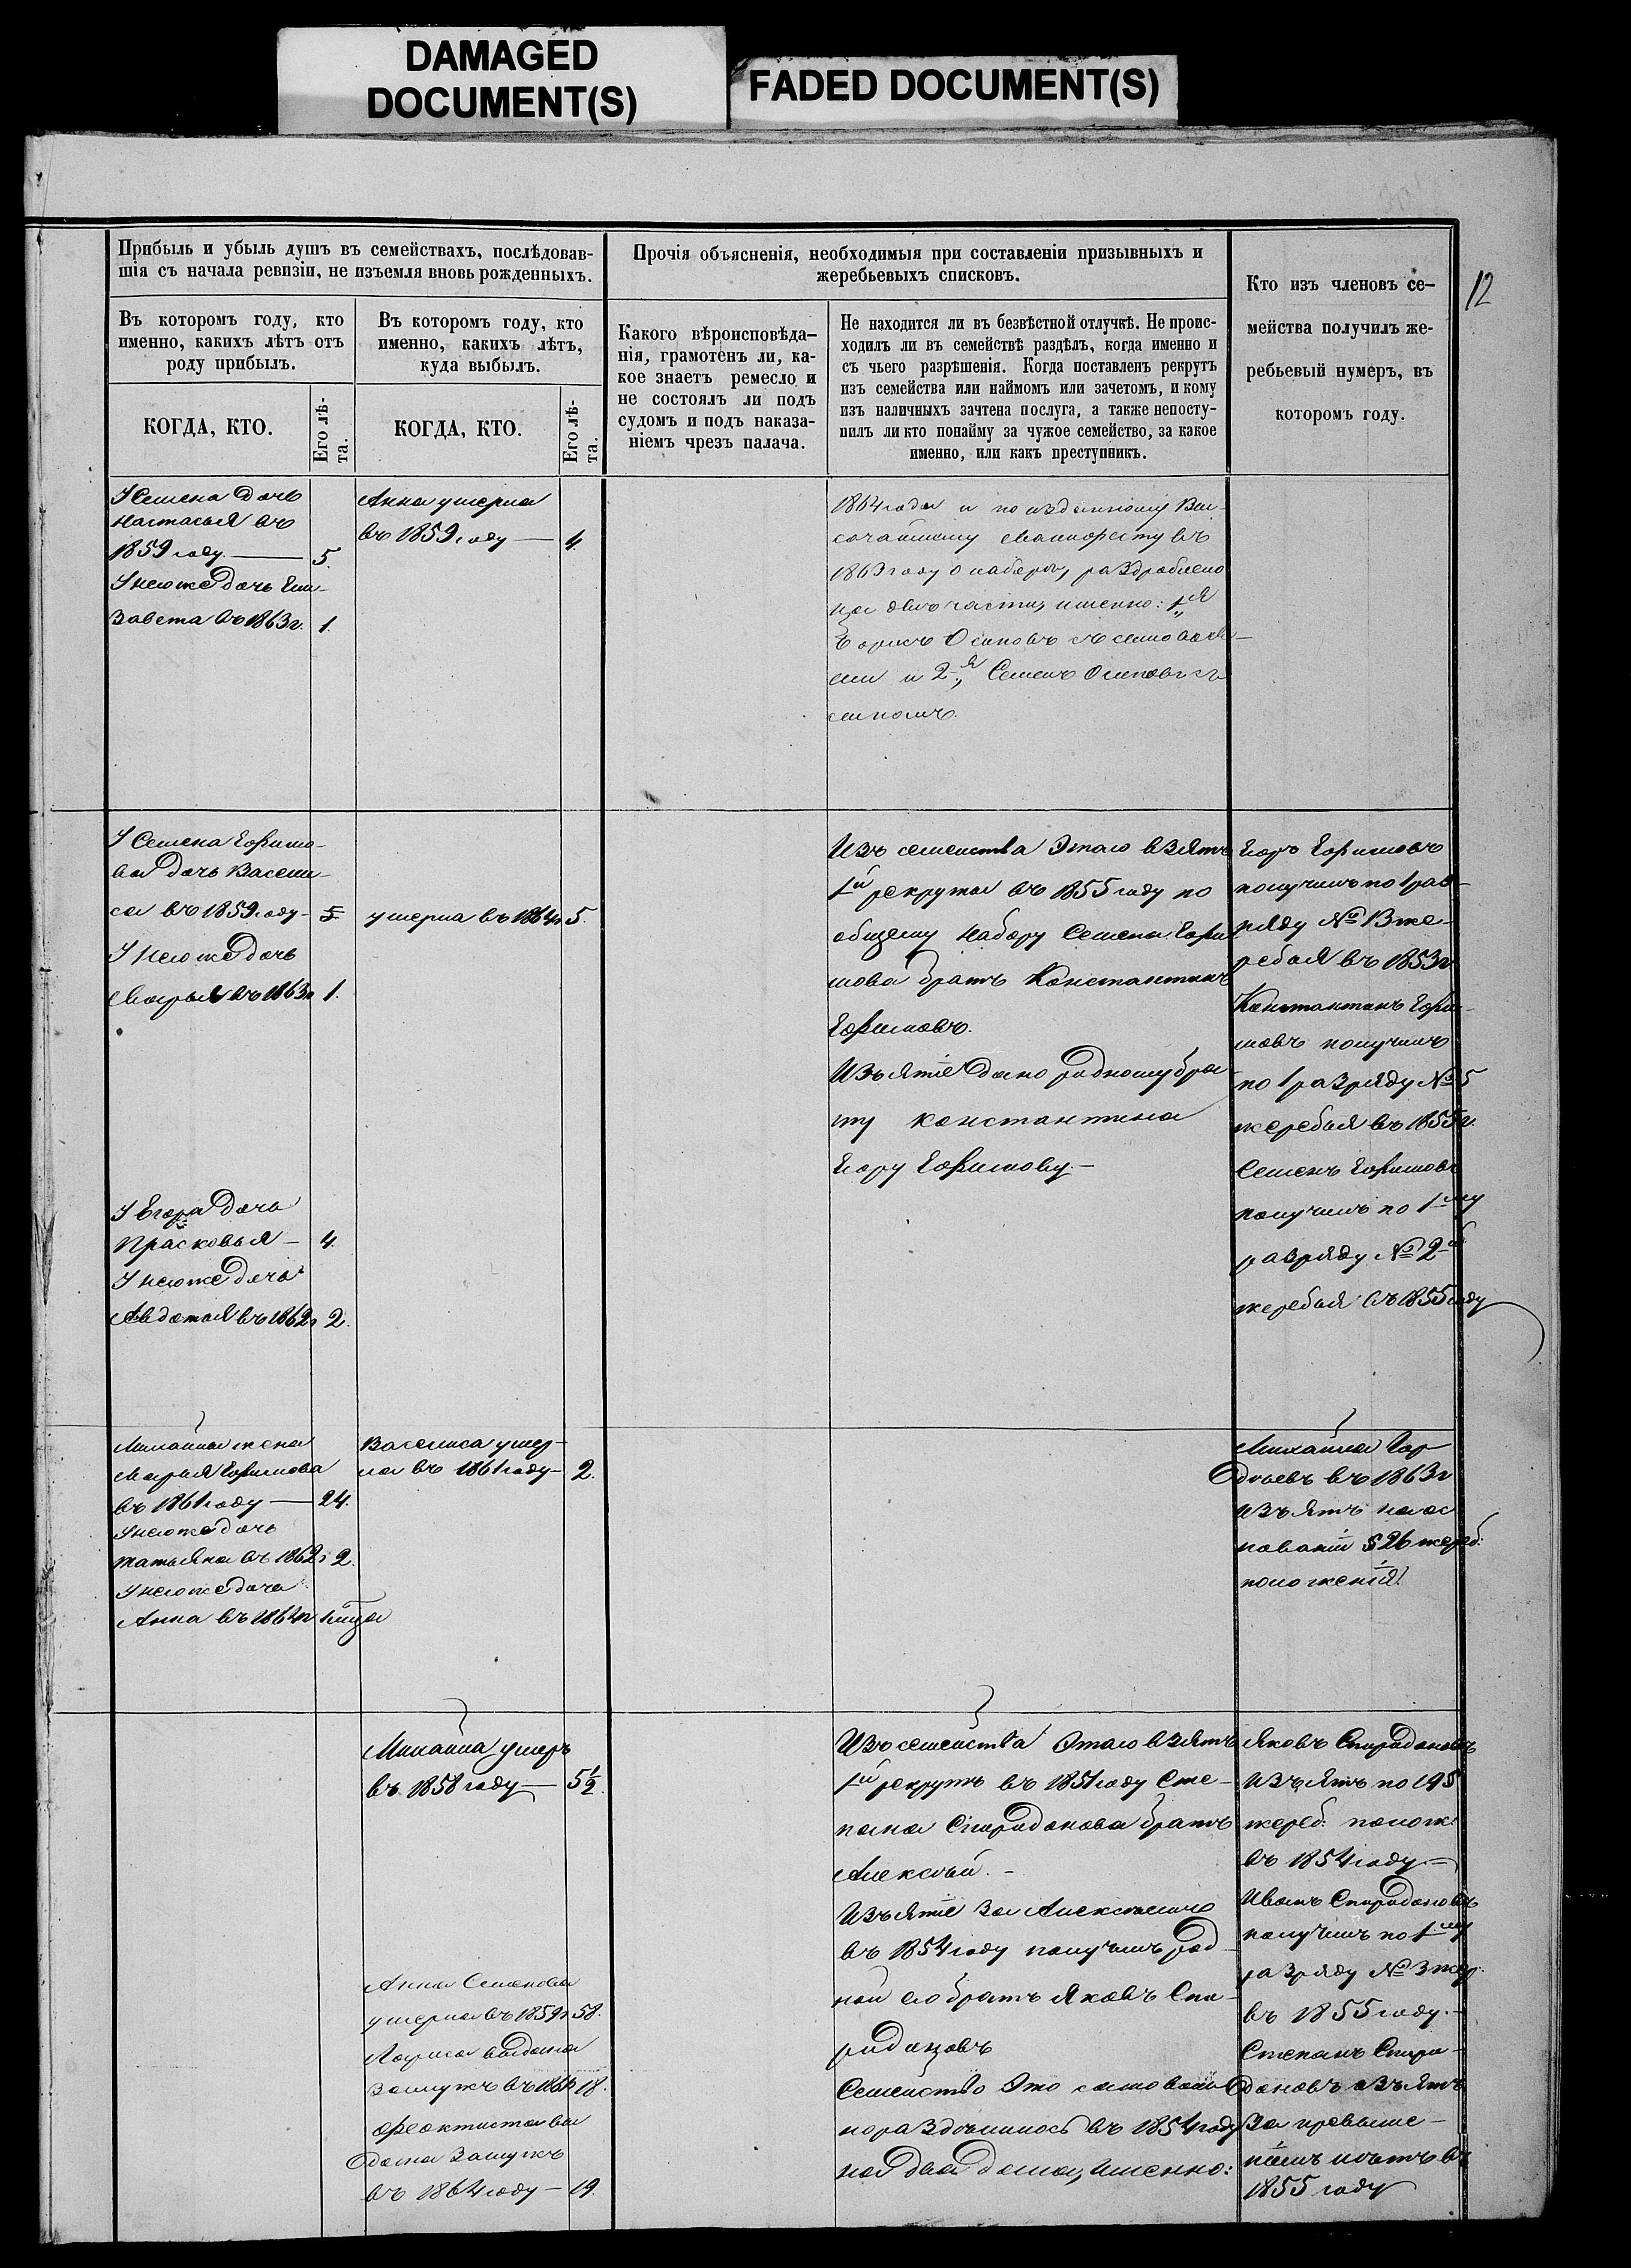 DAMAGED
DOCUMENT(S)
FADED DOCUMENT(S)
12
Прибыль и убыль душъ въ семействахъ, послѣдовав-
шія съ начала ревизіи, не изъемля вновь рожденныхъ.
Въ которомъ году, кто
именно, какихъ лѣтъ отъ
роду прибылъ.
КОГДА, КТО.
Его лѣ-
та.
Въ которомъ году, кто
именно, какихъ лѣтъ,
куда выбылъ.
КОГДА, КТО.
Его лѣ-
та.
Прочія объясненія, необходимыя при составленіи призывныхъ и
жеребьевыхъ списковъ.
Какого вѣроисповѣда-
нія, грамотенъ ли, ка-
кое знаетъ ремесло и
не состоялъ ли подъ
судомъ и подъ наказа-
ніемъ чрезъ палача.
Не находится ли въ безвѣстной отлучкѣ. Не проис-
ходилъ ли въ семействѣ раздѣлъ, когда именно и
съ чьего разрѣшенія. Когда поставленъ рекрутъ
изъ семейства или наймомъ или зачетомъ, и кому
изъ наличныхъ зачтена послуга, а также непосту-
пилъ ли кто понайму за чужое семейство, за какое
именно, или какъ преступникъ.
Кто изъ членовъ се-
мейства получилъ же-
ребьевый нумеръ, въ
которомъ году.
У Семена дочь
Настасья въ
1859 году — 5.
У него же дочь Ели-
завета въ 1863 г. 1.
Анна умерла
въ 1859 году — 4.
1864 года и по изданному Вы-
сочайшему Манифесту въ
1863 году о наборѣ, раздроблено
на двѣ части, именно: 1я
Борисъ Осиповъ съ сыновья-
ми и 2я, Семенъ Осиповъ съ
сыномъ.
У Семена Ефимо-
ва дочь Васили-
са въ 1859 году — 5
У него же дочь
Марья въ 1863 г 1.
умерла въ 1864 г 5.
У Егора дочь
Прасковья — 4.
У него же дочь
Авдотья въ 1862 г 2.
Изъ семейства этаго взятъ
1й рекрутъ въ 1855 году по
общему набору Семена Ефи
мова братъ Константинъ
Ефимовъ.
Изъятіе дано родному бра-
ту Константина
Егору Ефимову. —
Егоръ Ефимовъ
получилъ по 1 раз-
ряду № 13 же-
ребья въ 1853 г
Константинъ Ефи-
мовъ получилъ
по 1 разряду № 5
жеребья въ 1855 г.
Семенъ Ефимовъ
получилъ по 1му
разряду № 2й
жеребья въ 1855 году
Михайла жена
Марья Ефимова
въ 1861 году — 24.
У него же дочь
Татьяна въ 1862 г 2.
У него же дочь
Анна въ 1864 г
Василиса умер-
ла въ 1861 году — 2.
Михайла Гор
дѣевъ въ 1863 г
изъятъ на ос
нованіи § 26 жереб.
положенія.
Михайла умеръ
въ 1858 году — 5½.
Анна Семенова
умерла въ 1859 г 58.
Лариса выдана
замужъ въ 18.
Феоктиста вы
дана замужъ
въ 1864 году — 19.
Изъ семейства этаго взятъ
1й рекрутъ въ 1851 году Сте-
пана Спиридонова братъ
Алексѣй. —
Изъятіе за Алексѣемъ
въ 1854 году получилъ род
ной его братъ Яковъ Спи-
ридоновъ
Семейство это самоволь
но раздѣлилось въ 1854 году
на два дома, именно:
Яковъ Спиридоновъ
изъятъ по 19 §
жереб. полож.
въ 1854 году —
Иванъ Спиридоновъ
получилъ по 1му
разряду № 3 жер.
въ 1855 году. —
Степанъ Спири-
доновъ изъятъ
за превыше-
ніемъ лѣтъ въ
1855 году